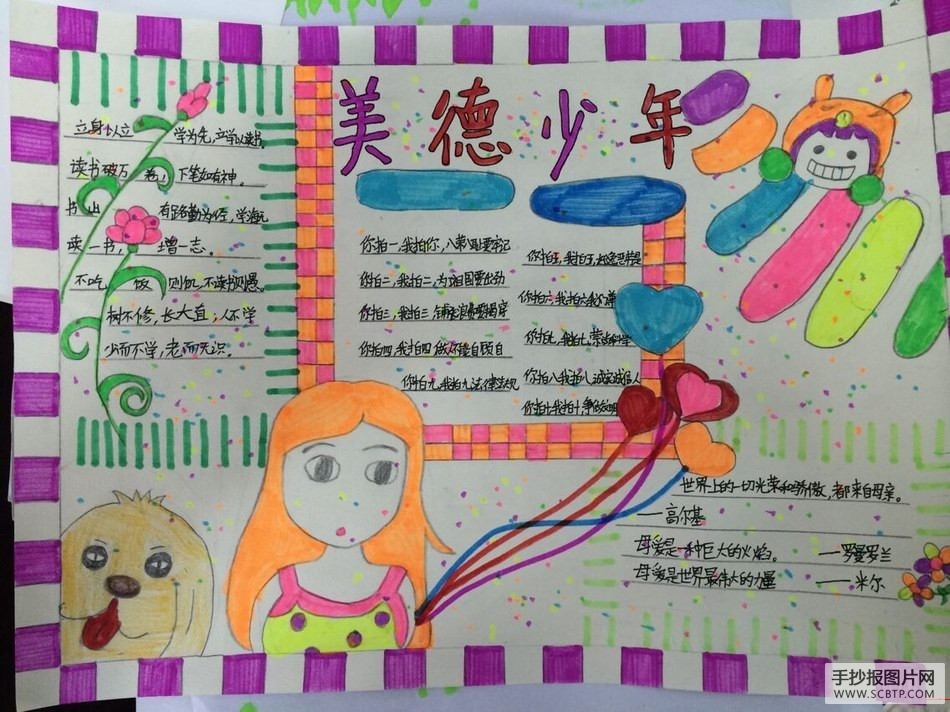 美德少年
立身以立学为先，立学以读书
读书破万卷，下笔如有神。
书山有路勤为径，学海无
读一书，增一志。
不吃饭则饥，不读书则愚。
树不修，长大直；人不学
少而不学，老而无识。
你拍一，我拍你，八荣耻要牢记
你拍二，我拍二，为祖国要出力
你拍三，我拍三，
你拍四，我拍四，做人不能自顾自
你拍九，我拍九，法律
你拍五，我拍五，
你拍六，我拍六，
你拍七，我拍七，
你拍八，我拍八，诚实诚信人
你拍十，我拍十，争做文明
世界上的一切光荣和骄傲，都来自母亲。
——高尔基
母爱是一种巨大的火焰。 ——罗曼罗兰
母爱是世界最伟大的力量 ——米尔
手抄报图片网
WWW.SCBTP.COM